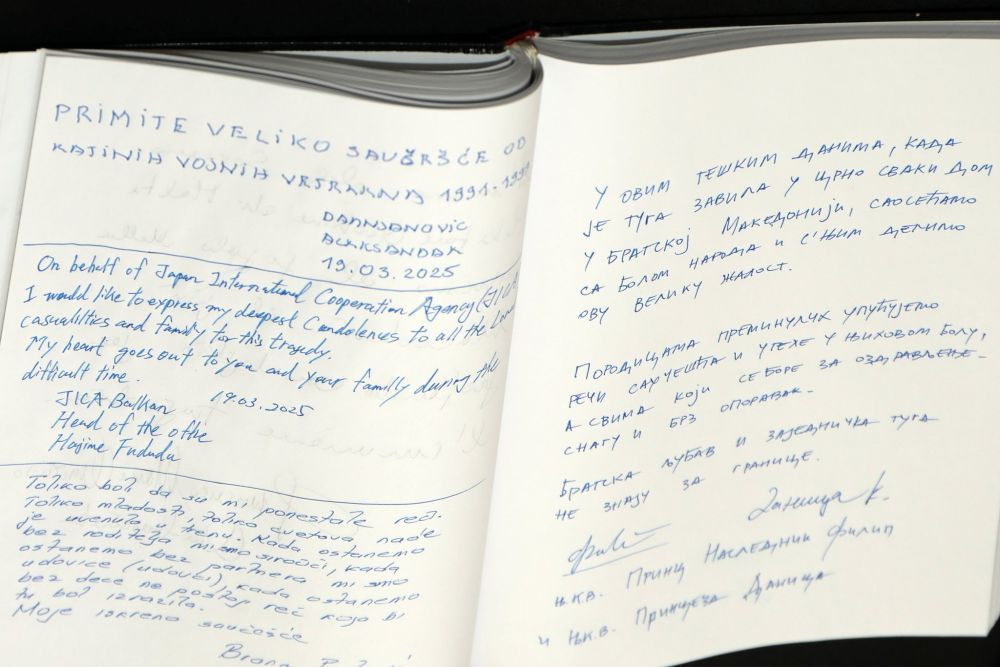 PRIMITE VELIKO SAUČRŠĆE OD
RAJINIH VOJNIH VETRANA 1991-199
DAMNJANOVIC
ALEKSANDAR
19.03.2025
On behalf of Japan International Cooperation Agency (JICA
I would like to express my deepest Condolences to all the
casualities and family for this tragedy.
My heart goes out to you and your familly during the
difficult time.
19.03.2025
JICA Balkan
Head of the offie
Hajime
Toliko boli da su mi ponestale reči.
Toliko mladosti, toliko cvetova, nade
je uvenulo u trenu. Kada ostanemo
bez roditelja mi smo siročići, kada
ostanemo bez partnera mi smo
udovice (udovci), kada ostanemo
bez dece ne postoji reč koja bi
tu bol izrazila.
Moje iskreno saučešće
У ОВИМ ТЕШКИМ ДАНИМА, КАДА
ЈЕ ТУГА ЗАВИЛА У ЦРНО СВАКИ ДОМ
У БРАТСКОЈ МАКЕДОНИЈИ, САОСЕЋАМО
СА БОЛОМ НАРОДА И С'ЊИМ ДЕЛИМО
ОВУ ВЕЛИКУ ЖАЛОСТ.
ПОРОДИЦАМА ПРЕМИНУЛИХ УПУЋУЈЕМО
РЕЧИ САУЧЕШЋА И УТЕХЕ У ЊИХОВОМ БОЛУ,
А СВИМА КОЈИ СЕ БОРЕ ЗА ОЗДРАВЉЕЊЕ-
СНАГУ И БРЗ ОПОРАВАК-
БРАТСКА ЉУБАВ И ЗАЈЕДНИЧКА ТУГА
НЕ ЗНАЈУ ЗА ГРАНИЦЕ.
Даница К.
Њ.К.В. ПРИНЦ НАСЛЕДНИК ФИЛИП
И Њ.К.В. ПРИНЦЕЗА ДАНИЦА